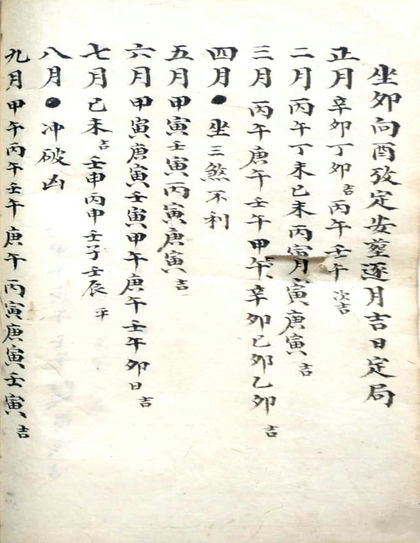 坐卯向酉攷定安葬逐月吉日定局
正月辛卯丁卯吉丙午壬午次吉
二月丙午丁未己未丙寅月寅庚寅吉
三月丙午庚午壬午甲午辛卯己卯乙卯吉
四月●坐三煞不利
五月甲寅壬寅丙寅庚寅吉
六月甲寅庚寅壬寅甲午庚午壬午卯日吉
七月己未吉壬申丙申壬子壬辰平
八月●冲破凶
九月甲午丙午壬午庚午丙寅庚寅壬寅吉